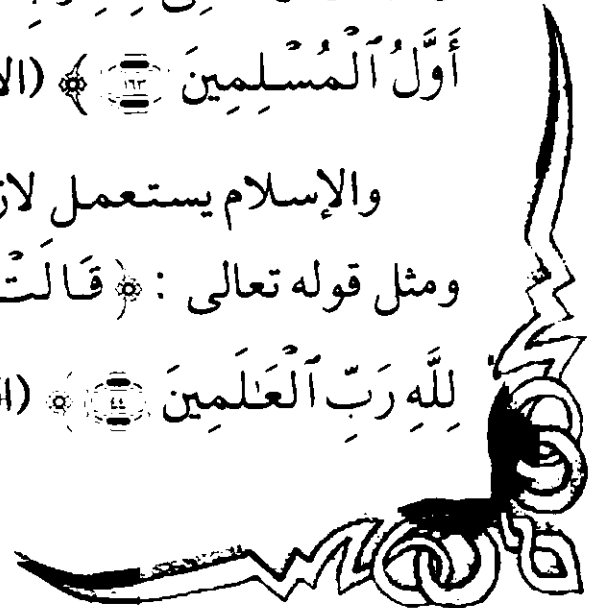 أَوَّلُ ٱلْمُسْلِمِينَ ١٦٣ ﴾ (الا
والإسلام يستعمل لاز
ومثل قوله تعالى : ﴿ قَالَتْ
لِلَّهِ رَبِّ ٱلْعَٰلَمِينَ ٤٤ ﴾ (ا